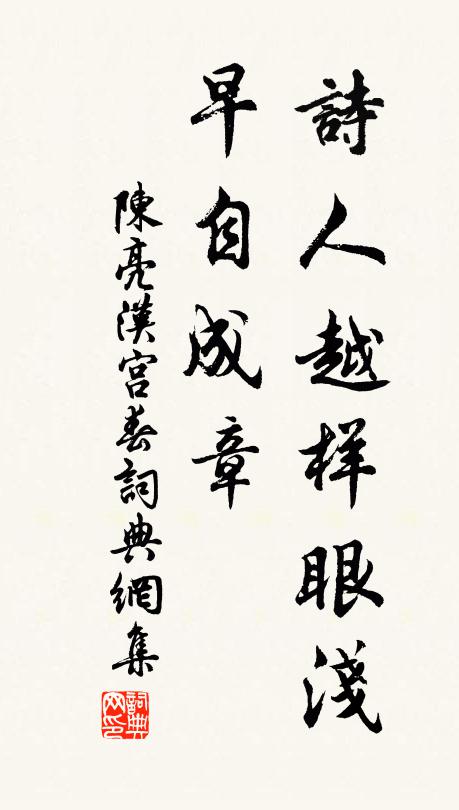 詩人越样眼淺
早自成章
陳亮漢宮春詞典網集
詞典网印